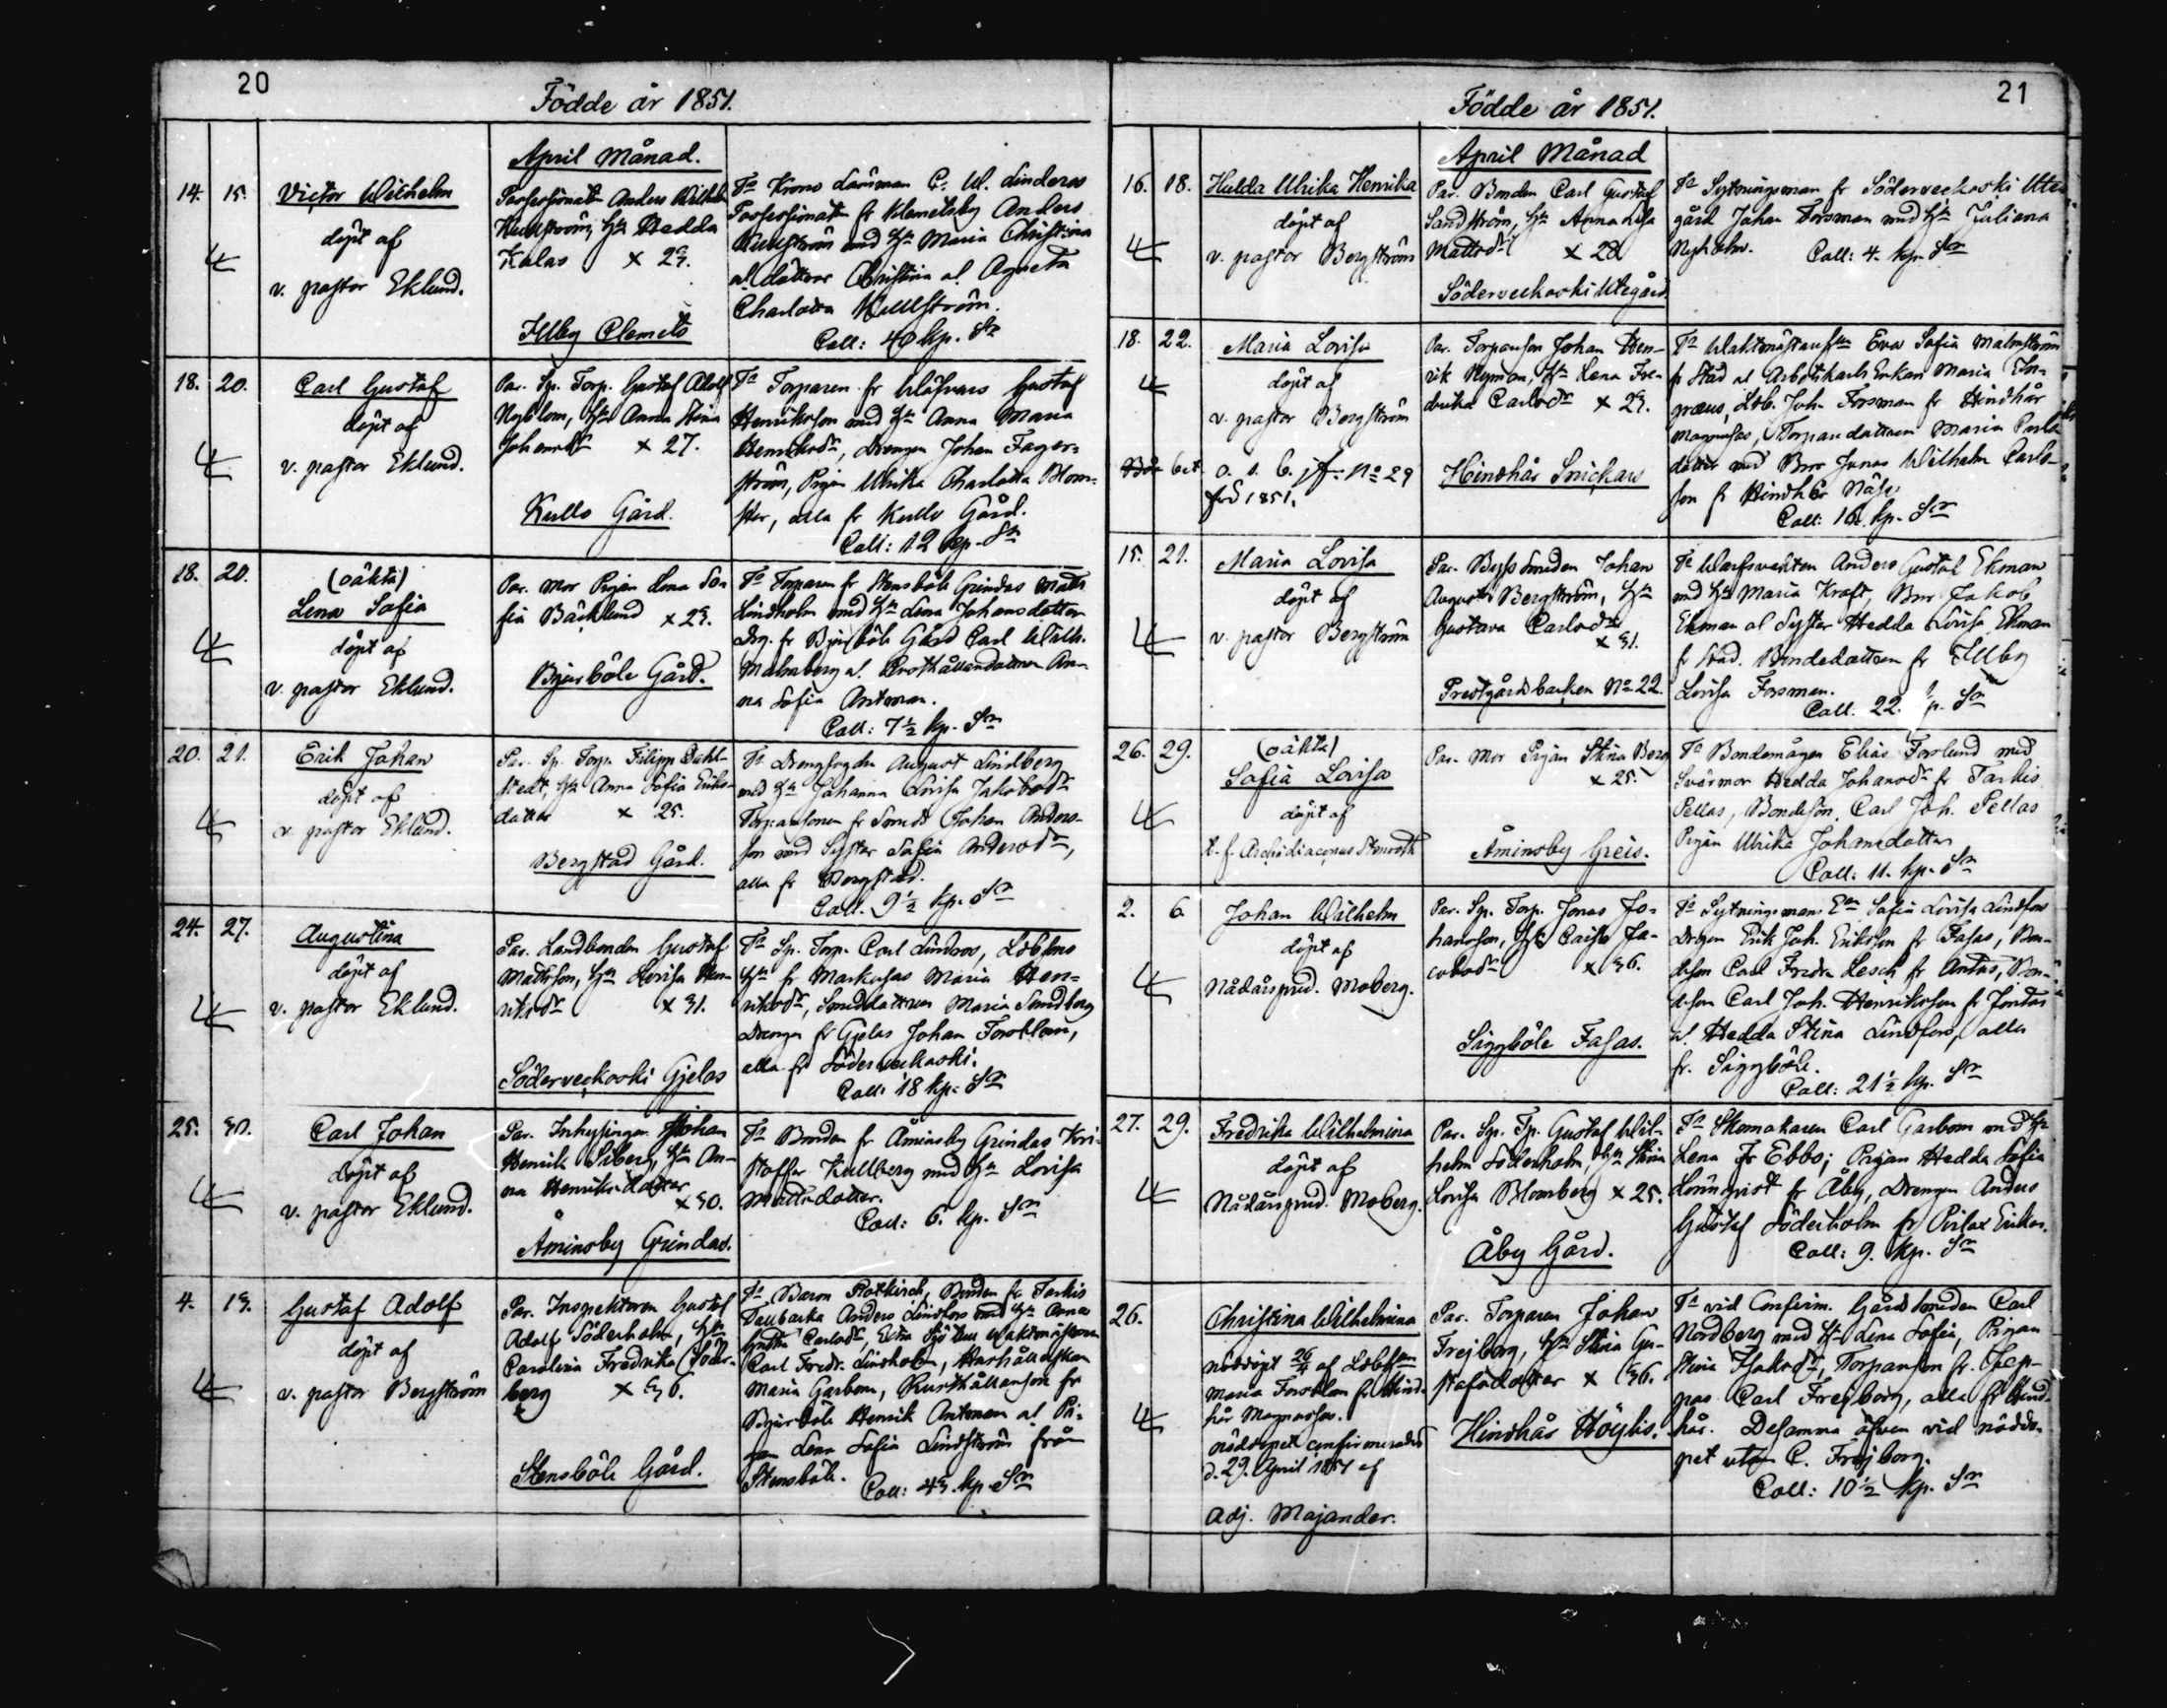 20
Födde år 1851.
April Månad.
14. 15. Victor Wilhelm
döpt af
v. pastor Eklund.
Possessionat. Anders Wilhelm
Kullström, Hu Hedda
Kalas x 23.
Illby Clemets
Fa Krono Länsman C. W. Linderos
Possessionat. fr Klemetsby Anders
Kullström med Hu Maria Christina
al dottrar Christina al Agneta
Charlotta Kullström.
Coll: 40 kp. Sr
18. 20. Carl Gustaf
döpt af
v. pastor Eklund.
Par. Sp. Torp. Gustaf Adolf
Nyblom, Hu Anna Stina
Johansdr x 27.
Kullo Gård.
Fa Torparen fr Gustaf
Henriksson med Hu Anna Maria
Henriksdr, Drengen Johan Fager-
ström, Pigan Ulrika Charlotta Blom-
ster, alla fr Kullo Gård.
Coll: 12 kp. Sr
18. 20. (oäkta)
Lena Sofia
döpt af
v. pastor Eklund.
Par. Mor Pigan Lena So-
fia Bäcklund x 23.
Bjurböle Gård.
Fa Torparen fr Stensböle Grindas Matts
Lindholm med Hu Lena Johansdotter
Drg. fr Bjurböle Gård Carl Wilh.
Malmberg al. Rusthållaredottren An-
na Sofia Antman.
Coll: 7½ kp. Sr
20. 21. Erik Johan
döpt af
v. pastor Eklund.
Par. Sp. Torp. Filipp Dahl-
stedt, Hu Anna Sofia Eriks-
dotter x 25.
Bergstad Gård.
Fa Drengfogden August Lindberg
med Hu Johanna Lovisa Jakobsdr
Torparesonen fr Smeds Johan Anders-
son med Syster Sofia Andersdr,
alla fr Bergstad.
Coll. 9½ kp. Sr
24. 27. Augustina
döpt af
v. pastor Eklund.
Par. Landbonden Gustaf
Mattsson, Hu Lovisa Hen-
riksdr x 31.
Söderveckoski Gjelas
Fa Sp. Torp. Carl Lindroos, Lbns
Hu fr Markusas Maria Hen-
riksdr, Smeddottren Maria Sandberg
Drengen fr Gjelas Johan Forsblom,
alla fr Söderveckoski.
Coll: 18 kp. Sr
25. 30. Carl Johan
döpt af
v. pastor Eklund.
Par. Inhysingen Johan
Henrik Siberg, Hu An-
na Henriksdotter
x 30.
Åminsby Grindas.
Fa Bonden fr Åminsby Grindas Kri-
stoffer Kullberg med Hu Lovisa
Mattsdotter.
Coll: 6. kp. Sr
4. 13. Gustaf Adolf
döpt af
v. pastor Bergström
Par. Inspektoren Gustaf
Adolf Söderholm, Hu
Carolina Fredrika Söder-
berg x 36.
Stensböle Gård.
Fa Baron Rotkirch, Bonden fr Tarkis
Tallbacka Anders Lindfors med Hu Anna
Carlsdr,
Carl Fredr. Lindholm, Hushållerskan
Maria Garbom, Rusthållareson fr
Bjurböle Henrik Antman al Pi-
gan Lena Sofia Lindström från
Stensböle. Coll: 43. kp. Sr
21
Födde år 1851.
April Månad
16. 18. Hulda Ulrika Henrika
döpt af
v. pastor Bergström
Par. Bonden Carl Gustaf
Sandström, Hu Anna Lisa
Mattsdr x 28
Söderveckoski Utegård.
Fa Sytningsman fr Söderveckoski Ute-
gård Johan Forsman med Hu Juliana
Nyholm. Coll: 4. kp. Sr
18. 22. Maria Lovisa
döpt af
v. pastor Bergström
o. s. b. jfr No 29
fvd 1851.
Par. Torpareson Johan Hen-
rik Nyman, Hu Lena Fre-
drika Carlsdr x 23.
Hindhår Snickars
Fa Waktmästarefrun Eva Sofia Malmström
fr Stad al Arbetskarls Enkan Maria En-
græus, Lbb. Joh. Forsman fr Hindhår
Magnusas, Torparedottren Maria Carls-
dotter med Bror Jonas Wilhelm Carls-
son fr Hindhår Näse.
Coll: 16. kp. Sr
15. 21. Maria Lovisa
döpt af
v. pastor Bergström
Par. Bysssmeden Johan
August Bergström, Hu
Gustava Carlsdr
x 31.
Prestgårdsbacken No 22.
Fa Warfswakten Anders Gustaf Ekman
med Hu Maria Kraft, Bror Jakob
Ekman al Syster Hedda Lovisa Ekman
fr Stad. Bondedottren fr Illby
Lovisa Forsman.
Coll. 22. kp. Sr
26. 29. (oäkta)
Sofia Lovisa
döpt af
t. f. Archidiaconus Stenroth
Par. Mor Pigan Stina Berg
x 25.
Åminsby Greis.
Fa Bondemågen Elias Forslund med
Svärmor Hedda Johansdr fr Tarkis
Pellas, Bondeson Carl Joh. Pellas
Pigan Ulrika Johansdotter
Coll: 11. kp. Sr
2. 6. Johan Wilhelm
döpt af
Nådårspred. Moberg.
Par. Sp. Torp. Jonas Jo-
hansson, Hu Caisa Ja-
cobsdr x 36.
Siggböle Fasas.
Fa Sytningsmans En Sofia Lovisa Lindfors
Drgen Erik Joh. Eriksson fr Fasas, Bon-
deson Carl Fredr Lesch fr Antas, Bon-
deson Carl Joh. Henriksson fr Jontas
al. Hedda Stina Lindfors, alla
fr. Siggböle.
Coll: 21½ kp. Sr
27. 29. Fredrika Wilhelmina
döpt af
Nådårspred. Moberg.
Par. Sp. Tp. Gustaf Wil-
helm Söderholm, Hu Stina
Lovisa Blomberg x 25.
Åby Gård.
Fa Skomakaren Carl Garbom med Hu
Lena fr Ebbo; Pigan Hedda Sofia
Lönnqvist fr Åby, Drengen Anders
Gustaf Söderholm fr Pirlax Erikas.
Coll: 9. kp. Sr
26. Christina Wilhelmina
nöddöpt 26/4 af Lbbfrun
Maria Forsblom fr Hind-
hår Magnusas.
nöddopet confirmerades
d. 29. April 1851 af
Adj. Majander.
Par. Torparen Johan
Frejborg, Hu Stina Gu-
stafsdotter x 36.
Hindhår Höglis.
Fa vid Confirm. Gårdsmeden Carl
Nordberg med Hu Lena Sofia, Pigan
Stina Jakobsdr, Torpareson fr. Jep-
pas Carl Frejborg, alla fr Hind-
hår. Desamma äfven vid nöddo-
pet utom C. Frejborg.
Coll: 10½ kp. Sr